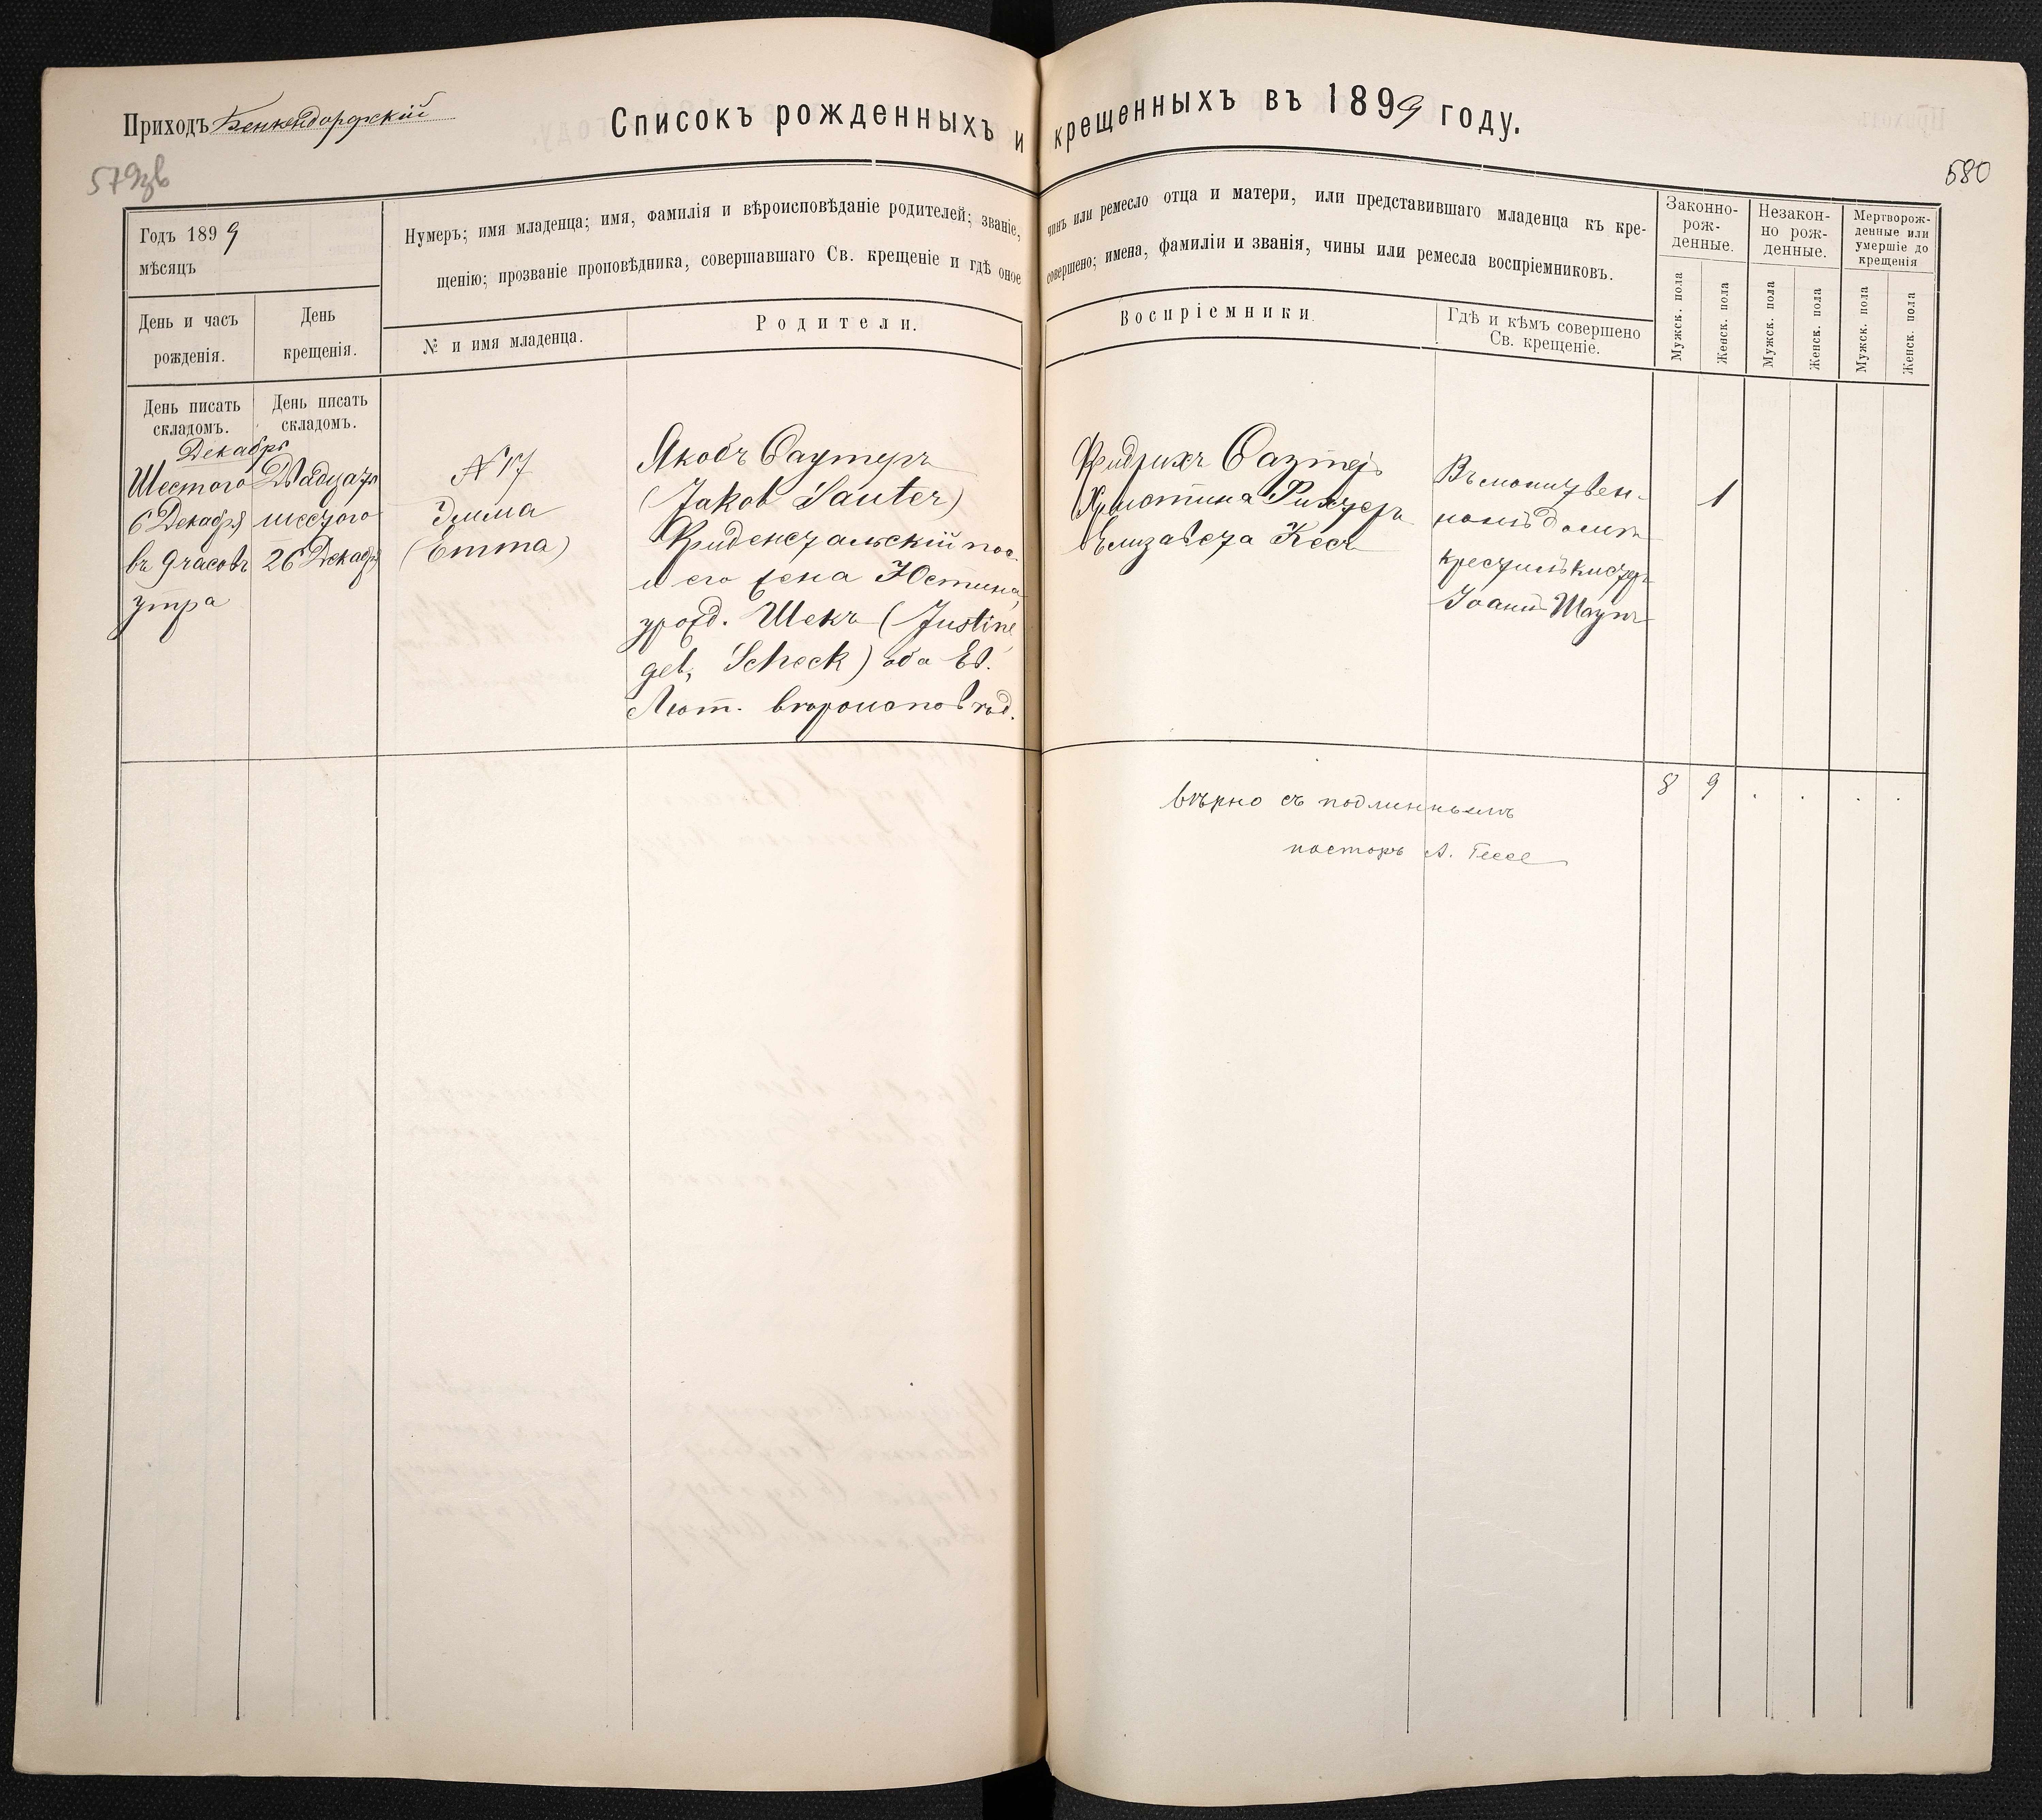 Приходъ Бенкендорфскій
Списокъ рожденныхъ и крещенныхъ въ 1899 году.
579зв
580
Годъ 1899
мѣсяцъ
День и часъ
рожденія.
День
крещенія.
Нумеръ; имя младенца; имя, фамилія и вѣроисповѣданіе родителей; званіе, чинъ или ремесло отца и матери, или представившаго младенца къ кре-
щенію; прозваніе проповѣдника, совершавшаго Св. крещеніе и гдѣ оное совершено; имена, фамиліи и званія, чины или ремесла воспріемниковъ.
№ и имя младенца.
Родители.
Воспріемники.
Гдѣ и кѣмъ совершено
Св. крещеніе.
Законно-
рож-
денные.
Незакон-
но рож-
денные.
Мертворож-
денные или
умершіе до
крещенія
Мужск. пола
Женск. пола
Мужск. пола
Женск. пола
Мужск. пола
Женск. пола
День писать
складомъ.
День писать
складомъ.
Декабрь
Шестого
6 Декабря
въ 9 часовъ
утра
Двадцать
шестого
26 Декабря
№ 17
Эмма
(Emma)
Якобъ Саутеръ
(Jakob Sauter)
Фриденстальскій пос.
и его жена Юстина,
урожд. Шекъ (Justine
geb. Scheck) оба Ев.
Лют. вѣроисповѣд.
Фридрихъ Саутеръ
Христина Рихтеръ
Елизавета Кесъ
Въ молитвен-
номъ домѣ
крестилъ кистеръ
Іоаннъ Шаупъ
1
8 9 . . . .
вѣрно съ подлиннымъ
пасторъ А. Гессе